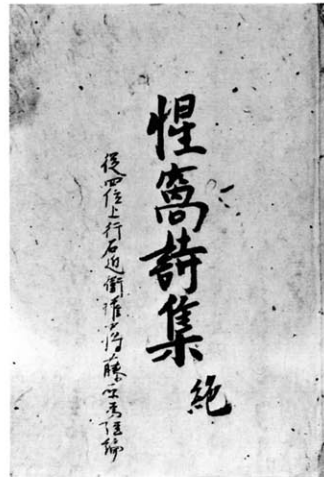 惺窩詩集 絶
從四位上行右近衛權少将藤原爲經編